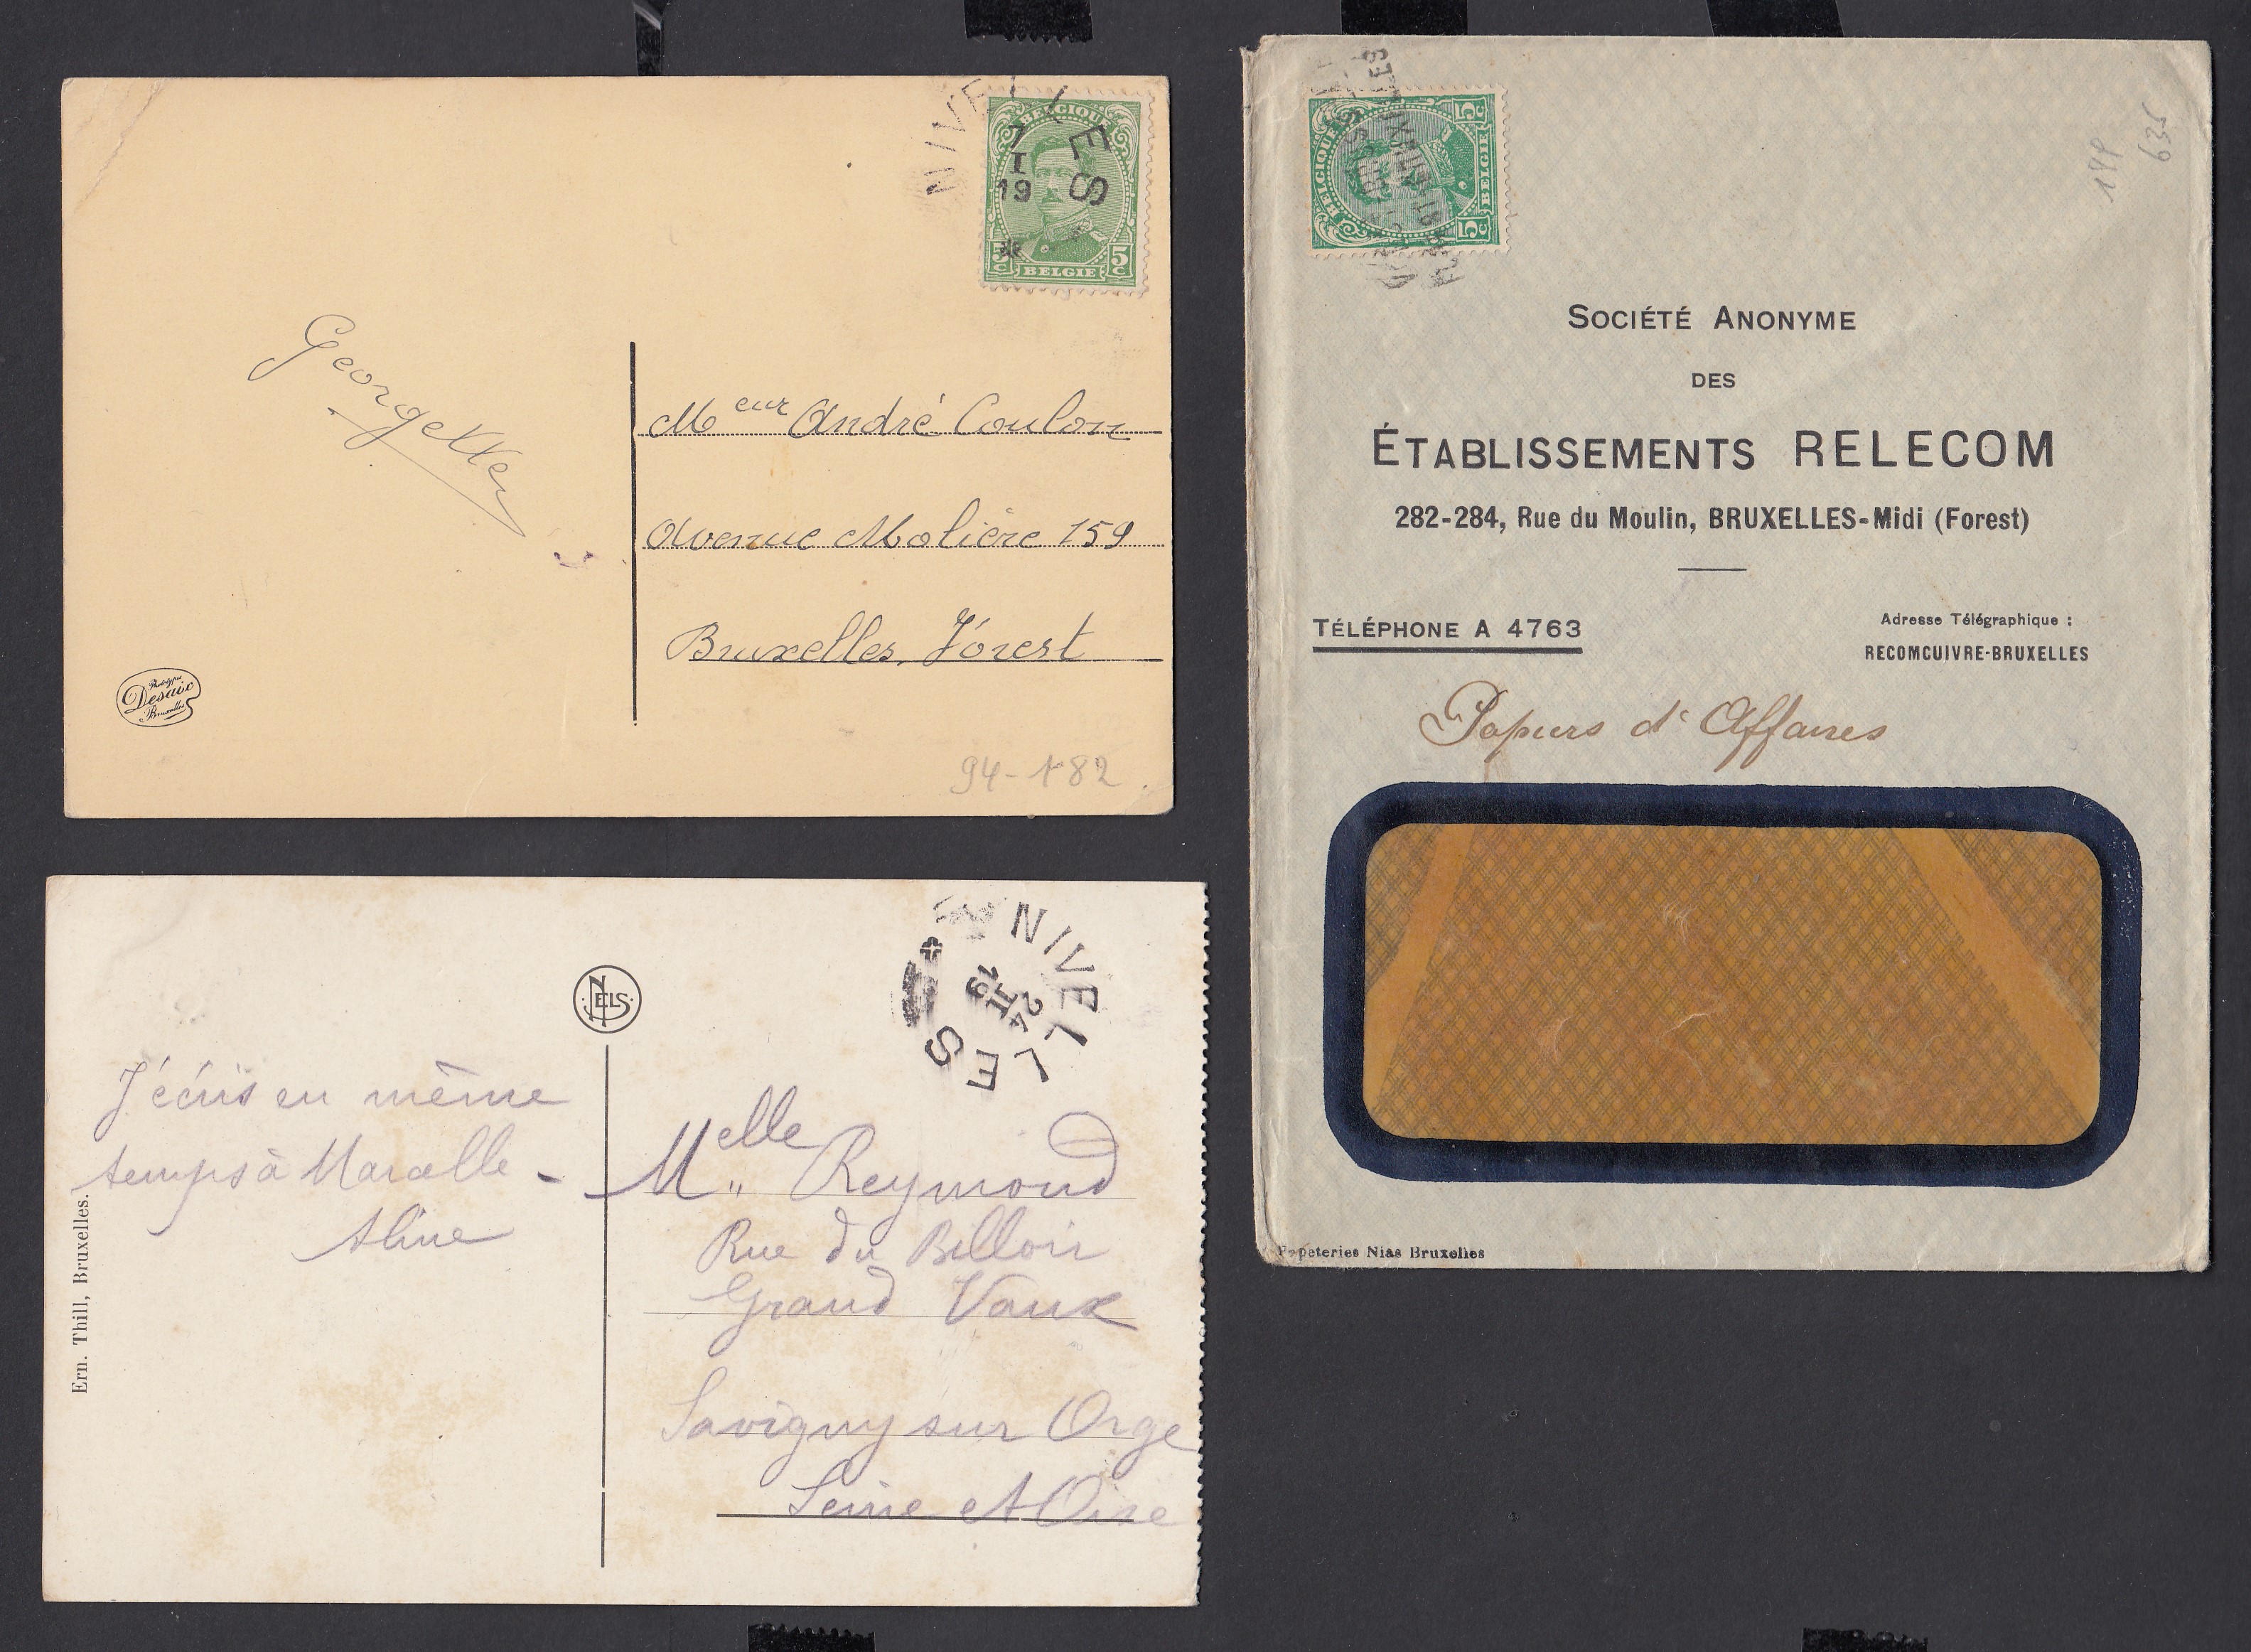 NIVELLES
7
I
19
BELGIQUE
5c 5c
BELGIE
Georgette
Mᵉᵘʳ André Coulon
Avenue Molière 159
Bruxelles, Forest
Phototypie
Desaix
Bruxelles
94-182
NELS
NIVELLES
24
II
19
J'écris en même
temps à Marcelle -
Aline
Ern. Thill, Bruxelles.
Mᵉˡˡᵉ Reymond
Rue du Billoir
Grand Vaux
Savigny sur Orge
Seine et Oise
BELGIQUE
5c 5c
BELGIE
635
SOCIÉTÉ ANONYME
DES
ÉTABLISSEMENTS RELECOM
282-284, Rue du Moulin, BRUXELLES-Midi (Forest)
TÉLÉPHONE A 4763
Adresse Télégraphique :
RECOMCUIVRE-BRUXELLES
Papiers d'Affaires
Papeteries Nias Bruxelles